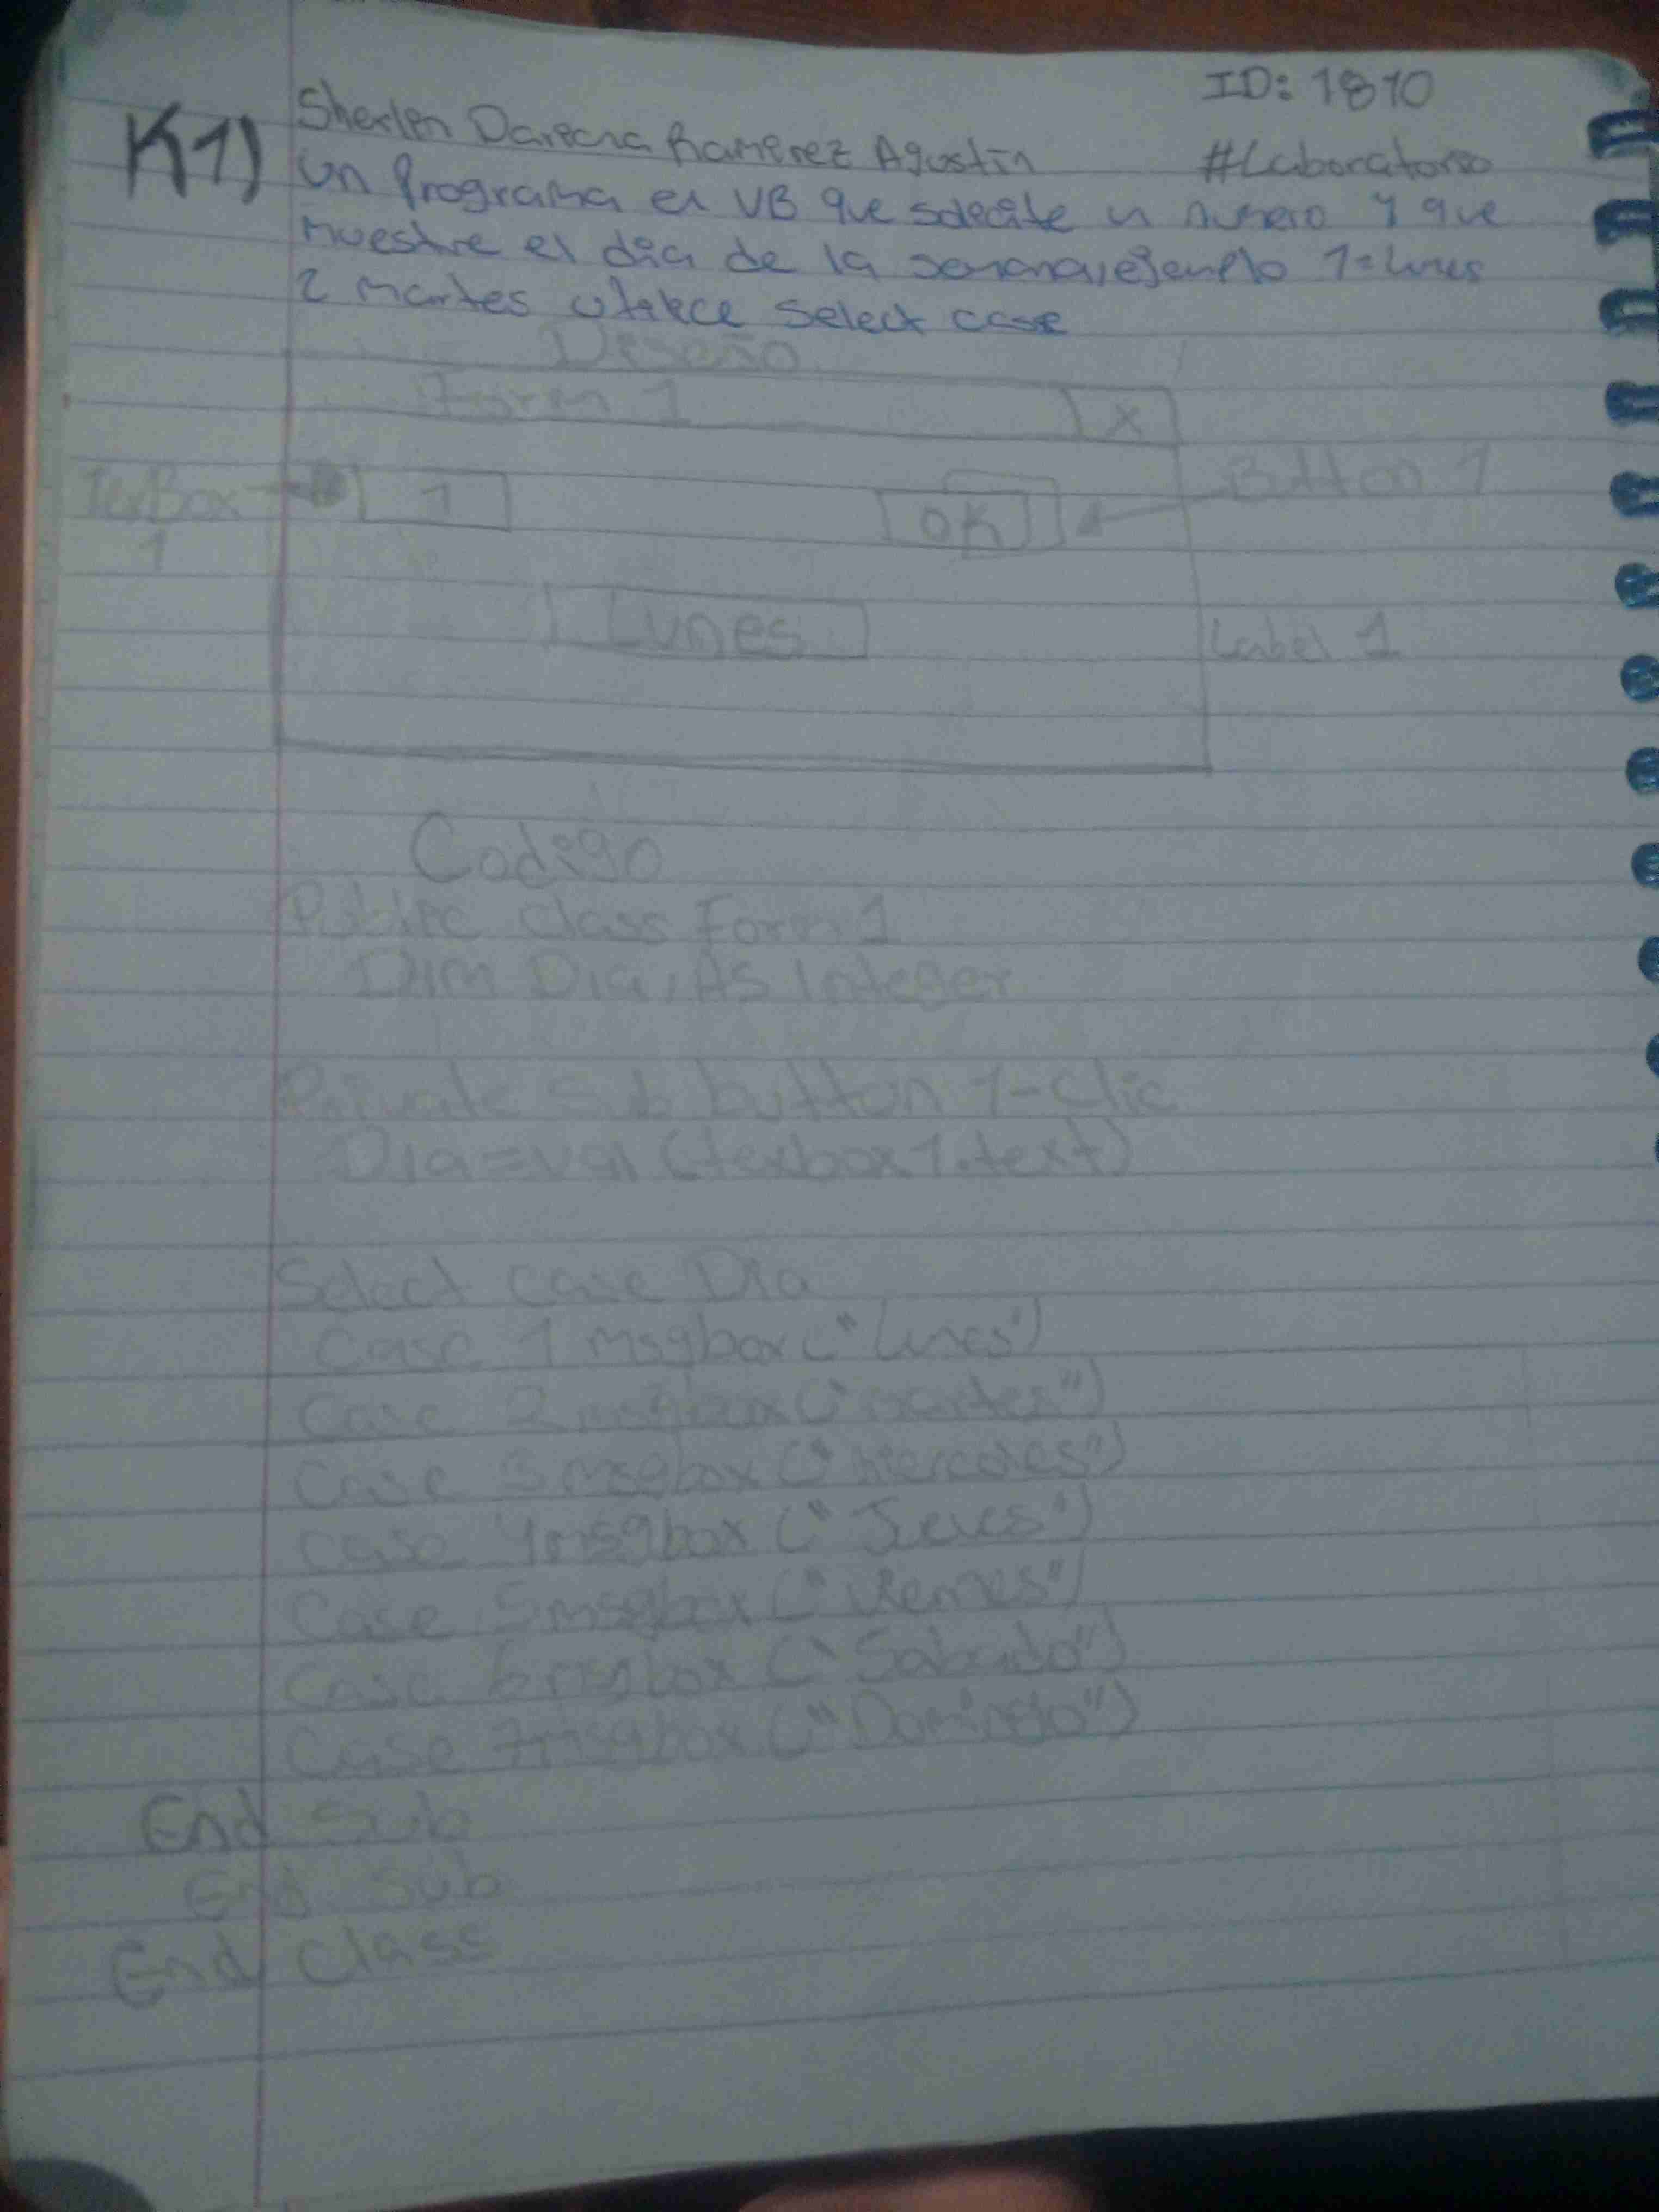 ID: 1810
K1) Sherlen Dareana Ramerez Agustin #Laboratorio
un Programa en VB que solecite un numero y que
muestre el dia de la semana, ejemplo 1=lunes
2 martes utilece select case
Deseño
Form 1 X
TexBox 1
1
OK
Button 1
Lunes
Label 1
Codigo
Publec class Form 1
Dim Dia, As Integer
Private sub button 1-Clic
Dia=val (texbox1.text)
Select case Dia
Case 1 msgbox ("lunes")
Case 2 msgbox ("martes")
Case 3 msgbox ("Miercoles")
case 4 msgbox ("Jueves")
Case 5 msgbox ("Viernes")
Case 6 msgbox ("Sabado")
Case 7 msgbox ("Domingo")
End Sub
End Sub
End class